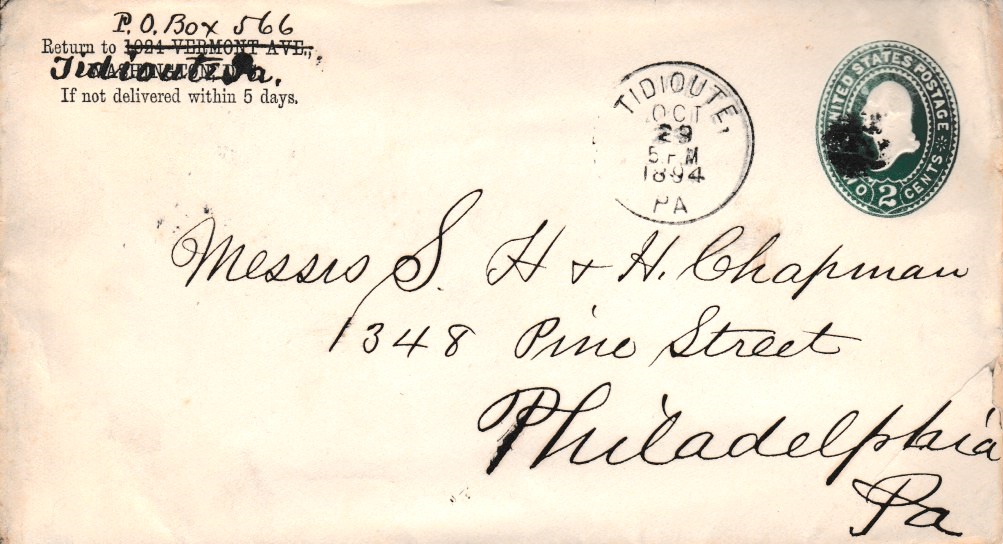 P. O. Box 566
Return to 1024 VERMONT AVE.,
WASHINGTON, D. C.
Tidioute Pa.
If not delivered within 5 days.
TIDIOUTE,
OCT
29
5 P.M
1894
PA
UNITED STATES POSTAGE
TWO 2 CENTS
Messrs S. H & H. Chapman
1348 Pine Street
Philadelphia
Pa